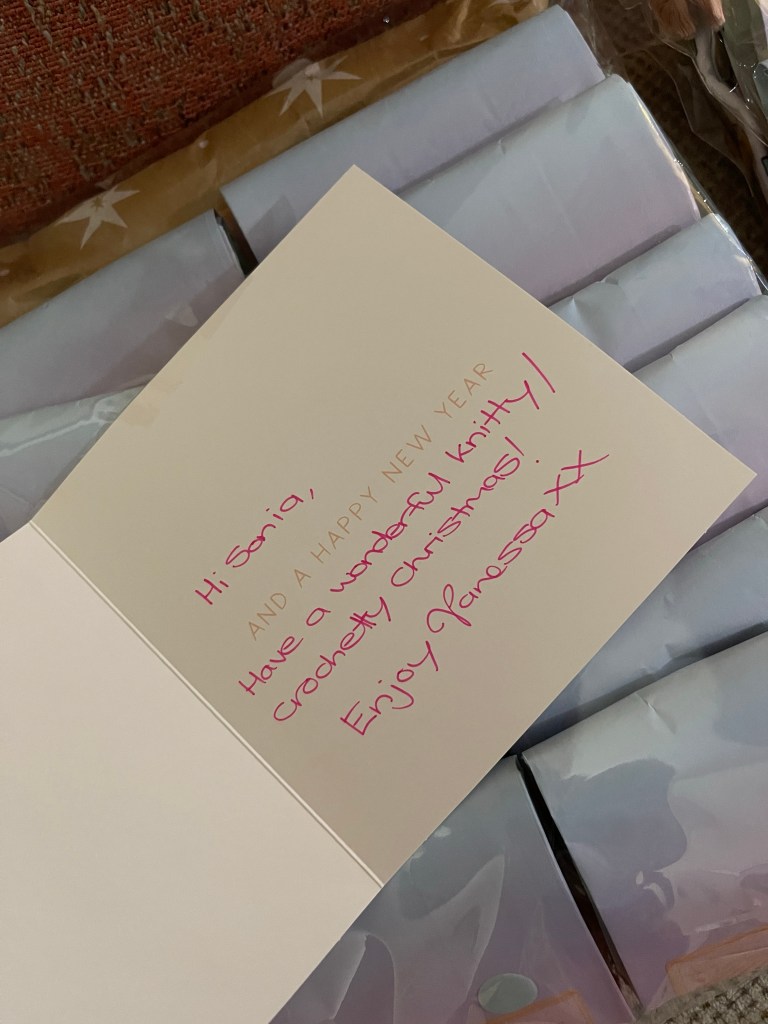 Hi Sonia,
AND A HAPPY NEW YEAR
Have a wonderful knitty/
crochetty christmas!
Enjoy Vanessa XX